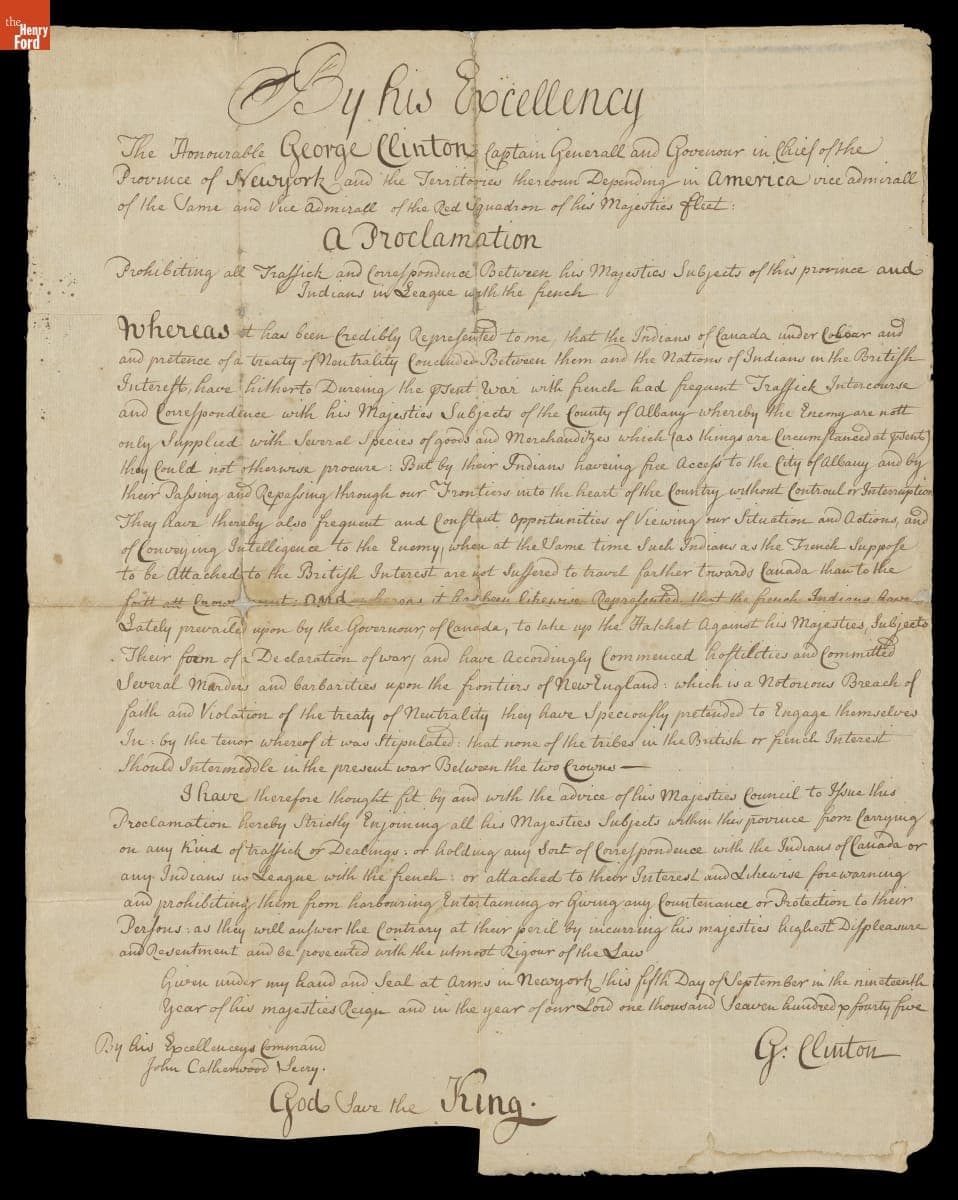 the
Henry
Ford
By his Excellency
The Honourable George Clinton Captain Generall and Govenour in Chief of the
Province of Newyork and the Territories thereon Depending in America vice admirall
of the Same and Vice Admirall of the Red Squadron of his Majesties fleet:
a Proclamation
Prohibiting all Traffick and Correspondence Between his Majesties Subjects of this province and
Indians in League with the french
Whereas it has been Credibly Represented to me, that the Indians of Canada under Colour and
and pretence of a treaty of Neutrality Concluded Between them and the Nations of Indians in the British
Interest, have hitherto Dureing the psent War with french had frequent Traffick Intercourse
and Correspondence with his Majesties Subjects of the County of Albany whereby the Enemy are nott
only Supplied with Several Species of goods and Merchandizes which (as things are Circumstanced at psent)
they Could not otherwise procure: But by their Indians haveing free Access to the City of Albany and by
their Passing and Repassing through our Frontiers into the heart of the Country without Controul or Interruption
They have thereby also frequent and Constant Opportunities of Viewing our Situation and Actions, and
of Conveying Intelligence to the Enemy, when at the Same time Such Indians as the French Suppose
to be Attached to the British Interest are not Suffered to travel farther towards Canada than to the
fortt att Crown and whereas it has been likewise Represented that the french Indians have
Lately prevailed upon by the Governour of Canada, to take up the Hatchet Against his Majesties Subjects
Their form of a Declaration of war, and have Accordingly Commenced hostilities and Committed
Several Murders and barbarities upon the frontiers of New England: which is a Notorious Breach of
faith and Violation of the treaty of Neutrality they have Speciously pretended to Engage themselves
In: by the tenor whereof it was Stipulated: that none of the tribes in the British or french Interest
Should Intermeddle in the present war Between the two Crowns —
I have therefore thought fit by and with the advice of his Majesties Council to Issue this
Proclamation hereby Strictly Enjoining all his Majesties Subjects within this province from Carrying
on any Kind of traffick or Dealings: or holding any Sort of Correspondence with the Indians of Canada or
any Indians in League with the french: or attached to their Interest and Likewise forewarning
and prohibiting them from harbouring Entertaining or Giving any Countenance or Protection to their
Persons: as they will answer the Contrary at their peril by incurring his majesties highest Displeasure
and Resentment and be prosecuted with the utmost Rigour of the Law
Given under my hand and Seal at Arms in Newyork this fifth Day of September in the nineteenth
Year of his majesties Reign and in the year of our Lord one thousand Seaven hundred & fourty five
By his Excellencys Command
John Catherwood Secry.
G: Clinton
God Save the King.